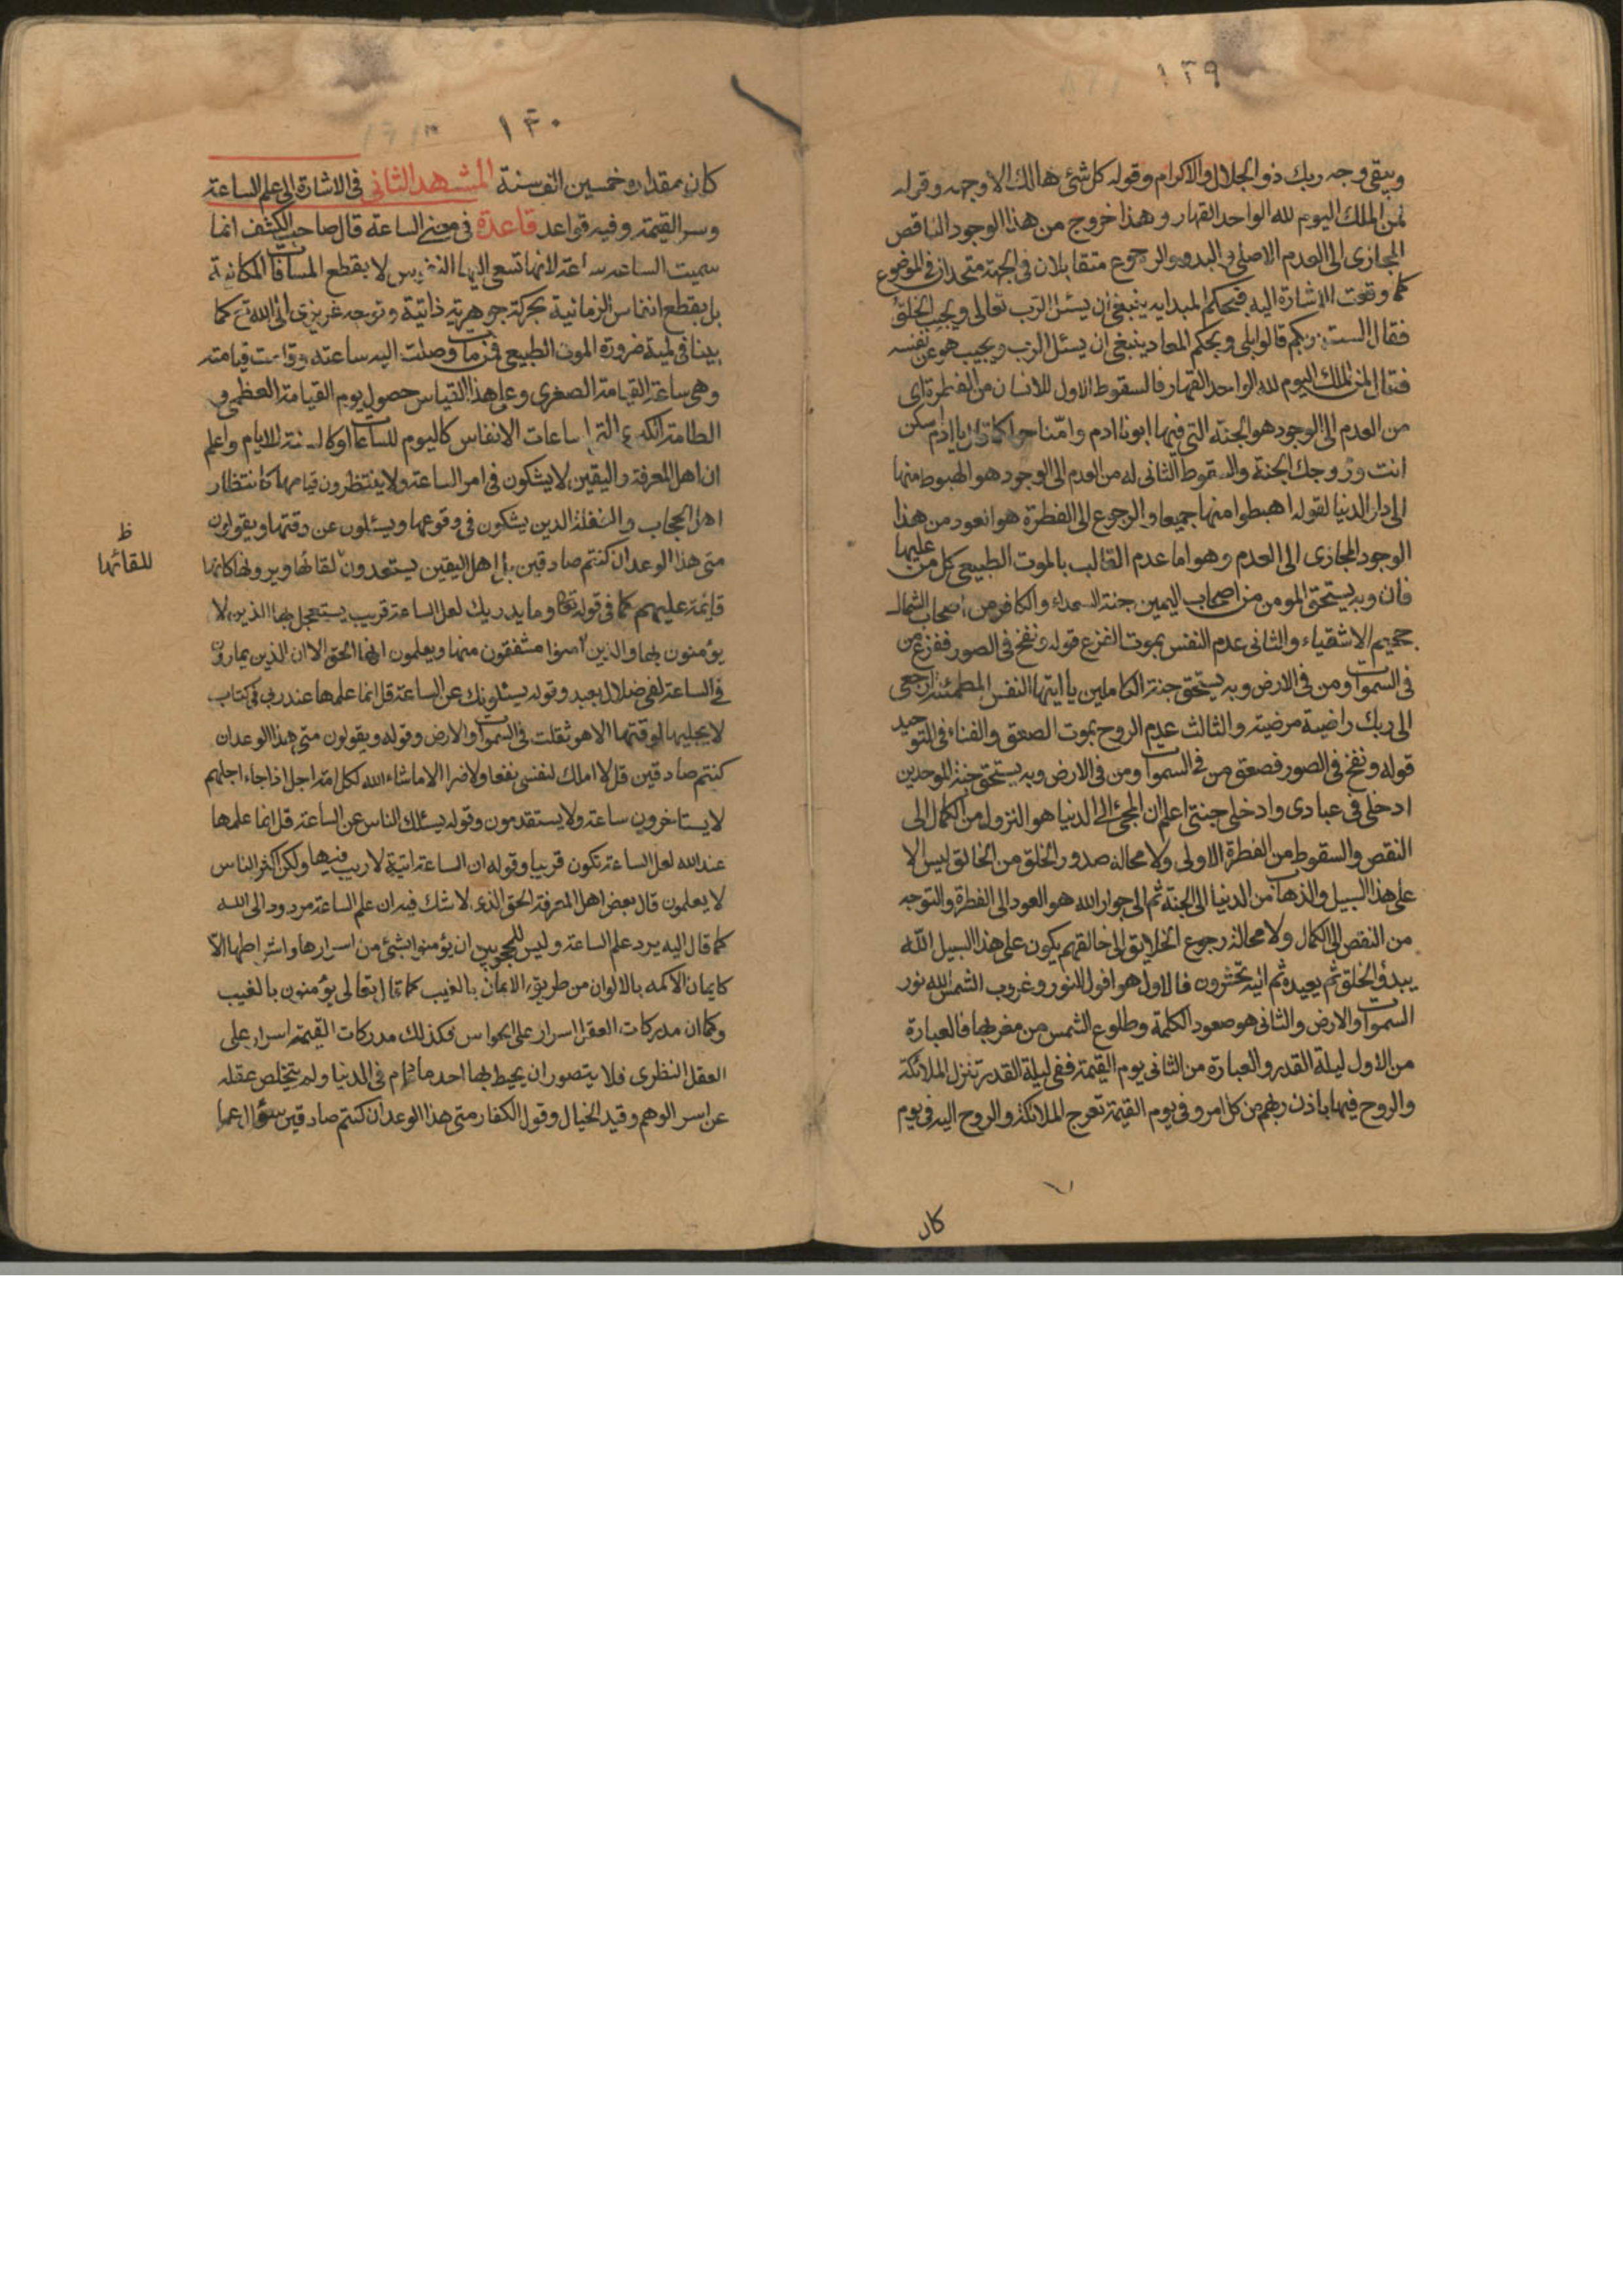 ١٢٩
ويبقى وجه ربك ذو الجلال والاكرام وقوله كل شئ هالك الا وجهه وقوله
لمن الملك اليوم لله الواحد القهار وهذا خروج من هذا الوجود الناقص
المجازى الى العدم الاصلى والبدو والرجوع متقابلان فى الجهة متحدان فى الموضوع
كما وقعت الاشارة اليه فبحكم المبدايه ينبغى ان يسئل الرب تعالى ويجيب الخلق
فقال الست بربكم قالوا بلى وبحكم المعاد ينبغى ان يسئل الرب ويجيب هو عن نفسه
فقال لمن الملك اليوم لله الواحد القهار فالسقوط الاول للانسان من الفطرة اى
من العدم الى الوجود هو الجنة التى فيها ابونا ادم وامنا حوا كما قال يا ادم اسكن
انت وزوجك الجنة والسقوط الثانى له من العدم الى الوجود هو الهبوط منها
الى دار الدنيا لقوله اهبطوا منها جميعا والرجوع الى الفطرة هو العود من هذا
الوجود المجازى الى العدم وهو اما عدم القالب بالموت الطبيعى كل من عليها
فان وبه يستحق المومن من اصحاب اليمين جنة السعداء والكافر من اصحاب الشمال
جحيم الاشقياء والثانى عدم النفس بموت الفزع قوله ونفخ فى الصور ففزع من
فى السموات ومن فى الارض وبه يستحق جنة الكاملين يا ايتها النفس المطمئنة ارجعى
الى ربك راضية مرضية والثالث عدم الروح بموت الصعق والفناء فى التوحيد
قوله ونفخ فى الصور فصعق من فى السموات ومن فى الارض وبه يستحق جنة الموحدين
ادخلى فى عبادى وادخلى جنتى اعلم ان المجئ الى الدنيا هو النزول من الكمال الى
النقص والسقوط من الفطرة الاولى ولا محالة صدور الخلق من الخالق ليس الا
على هذا السبيل والذهاب من الدنيا الى الجنة ثم الى جوار الله هو العود الى الفطرة والتوجه
من النقص الى الكمال ولا محالة رجوع الخلايق الى خالقهم يكون على هذا السبيل الله
يبدؤ الخلق ثم يعيده ثم اليه تحشرون فالاول هو افول النور وغروب الشمس الله نور
السموات والارض والثانى هو صعود الكلمة وطلوع الشمس من مغربها فالعبارة
من الاول ليلة القدر والعبارة من الثانى يوم القيمة ففى ليلة القدر تنزل الملائكة
والروح فيها باذن ربهم من كل امر وفى يوم القيمة تعرج الملائكة والروح اليه فى يوم
كان
١٣٠
كان مقداره خمسين الف سنة المشهد الثانى فى الاشارة الى علم الساعة
وسر القيمة وفيه قواعد قاعدة فى معنى الساعة قال صاحب الكشف انما
سميت الساعة ساعة لانها تسعى اليها النفوس لا بقطع المسافات المكانية
بل بقطع انفاس الزمانية بحركة جوهرية ذاتية وتوجه غريزى الى الله تع كما
بينا فى لمية ضرورة الموت الطبيعى فمن مات وصلت اليه ساعته وقامت قيامته
وهى ساعة القيامة الصغرى وعلى هذا القياس حصول يوم القيامة العظمى و
الطامة الكبرى التى لساعات الانفاس كاليوم للساعات او كالسنة للايام واعلم
ان اهل المعرفة واليقين لا يشكون فى امر الساعة ولا ينتظرون قيامها كانتظار
اهل الحجاب والغفلة الذين يشكون فى وقوعها ويسئلون عن وقتها ويقولون
متى هذا الوعد ان كنتم صادقين بل اهل اليقين يستعدون لقائها ويرونها كانها
ظ
للقائها
قايمة عليهم كما فى قوله تعالى وما يدريك لعل الساعة قريب يستعجل بها الذين لا
يؤمنون بها والذين امنوا مشفقون منها ويعلمون انها الحق الا ان الذين يمارون
فى الساعة لفى ضلال بعيد وقوله يسئلونك عن الساعة قل انما علمها عند ربى فى كتاب
لا يجليها لوقتها الا هو ثقلت فى السموات والارض وقوله ويقولون متى هذا الوعد ان
كنتم صادقين قل لا املك لنفسى نفعا ولا ضرا الا ما شاء الله لكل امة اجل اذا جاء اجلهم
لا يستاخرون ساعة ولا يستقدمون وقوله يسئلك الناس عن الساعة قل انما علمها
عند الله لعل الساعة تكون قريبا وقوله ان الساعة اتية لا ريب فيها ولكن اكثر الناس
لا يعلمون قال بعض اهل المعرفة الحق الذى لا شك فيه ان علم الساعة مردود الى الله
كما قال اليه يرد علم الساعة وليس للمحجوبين ان يؤمنوا بشئ من اسرارها واشراطها الا
كايمان الاكمه بالالوان من طريق الايمان بالغيب كما قال تعالى يؤمنون بالغيب
وكما ان مدركات العقل اسرار على الحواس فكذلك مدركات القيمة اسرار على
العقل النظرى فلا يتصور ان يحيط بها احد ما دام فى الدنيا ولم يتخلص عقله
عن اسر الوهم وقيد الخيال وقول الكفار متى هذا الوعد ان كنتم صادقين سؤال عما